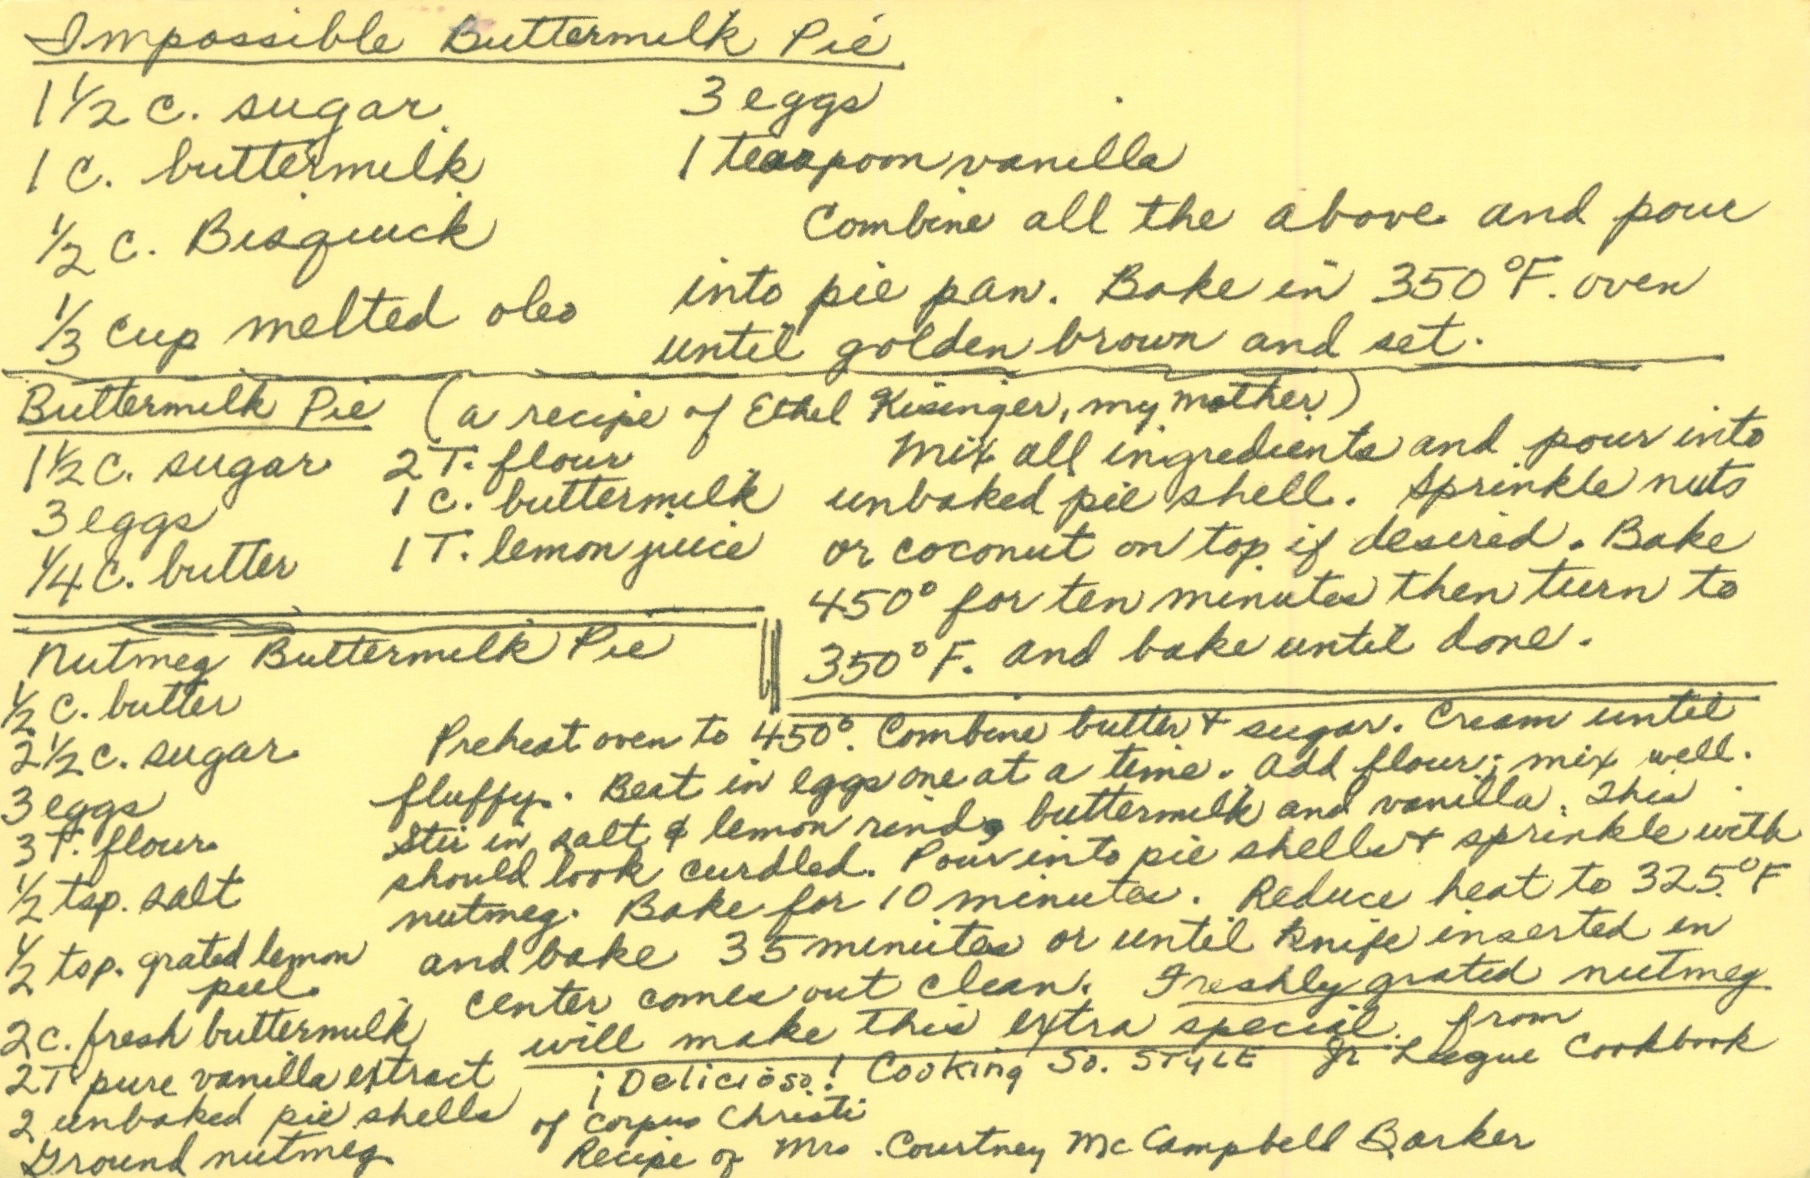 Impossible Buttermilk Pie
1 1/2 c. sugar
1 c. buttermilk
1/2 c. Bisquick
1/3 cup melted oleo
3 eggs
1 teaspoon vanilla
Combine all the above and pour
into pie pan. Bake in 350°F. oven
until golden brown and set.
Buttermilk Pie (a recipe of Ethel Kisinger, my mother)
1 1/2 c. sugar
3 eggs
1/4 c. butter
2 T. flour
1 c. buttermilk
1 T. lemon juice
Mix all ingredients and pour into
unbaked pie shell. Sprinkle nuts
or coconut on top if desired. Bake
450° for ten minutes then turn to
350° F. and bake until done.
Nutmeg Buttermilk Pie
1/2 c. butter
2 1/2 c. sugar
3 eggs
3 T. flour
1/2 tsp. salt
1/2 tsp. grated lemon
peel
2 c. fresh buttermilk
2 T pure vanilla extract
2 unbaked pie shells
Ground nutmeg
Preheat oven to 450°. Combine butter & sugar. Cream until
fluffy. Beat in eggs one at a time. Add flour; mix well.
Stir in salt & lemon rind, buttermilk and vanilla. This
should look curdled. Pour into pie shells & sprinkle with
nutmeg. Bake for 10 minutes. Reduce heat to 325°F
and bake 35 minutes or until knife inserted in
center comes out clean. Freshly grated nutmeg
will make this extra special. from
¡Delicioso! Cooking So. STYLE Jr League Cookbook
of Corpus Christi
Recipe of Mrs. Courtney McCampbell Barker